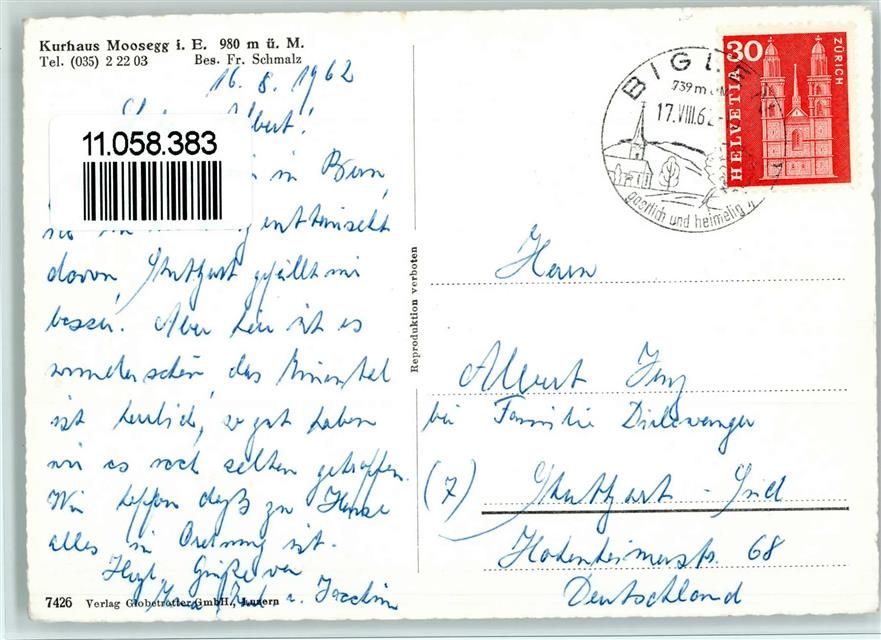 Kurhaus Moosegg i. E. 980 m ü. M.
Tel. (035) 2 22 03 Bes. Fr. Schmalz
16. 8. 1962
11.058.383
in Bern,
enttäuscht
davon, Stuttgart gefällt mir
besser. Aber hier ist es
wunderschön, das Emmental
ist herrlich, so gut haben
wir es noch selten getroffen.
Wir hoffen daß zu Hause
alles in Ordnung ist.
Herzl. Grüße von
u. Joachim
7426 Verlag Globetrotter GmbH., Luzern
Reproduktion verboten
BIGLEN
739 m
17.VIII.62
gastlich und heimelig
30
HELVETIA
ZÜRICH
Herrn
Albert
bei Familie Dirlewanger
(7) Stuttgart - Süd
Hohenheimerstr. 68
Deutschland